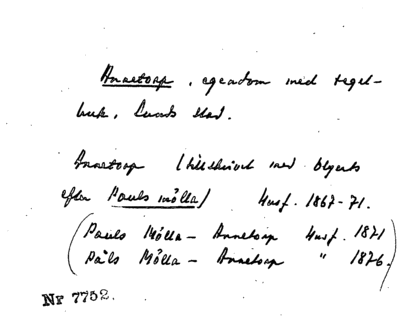 Annetorp, egendom med tegel-
bruk, Lunds stad.
Annetorp (tillskrivet med blyerts
efter Pauls mölla) Husf. 1867-71.
(Pauls Mölla - Annetorp Husf. 1871)
(Påls Mölla - Annetorp " 1876.)
Nr 7752.